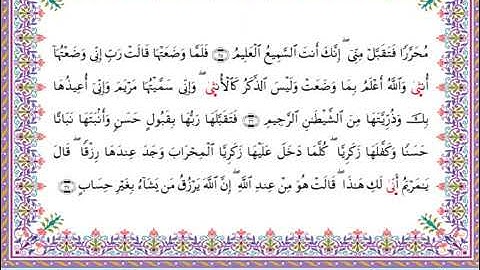 مُحَرَّرًا فَتَقَبَّلْ مِنِّىٓ ۖ إِنَّكَ أَنتَ ٱلسَّمِيعُ ٱلْعَلِيمُ ۝ فَلَمَّا وَضَعَتْهَا قَالَتْ رَبِّ إِنِّى وَضَعْتُهَآ
أُنثَىٰ وَٱللَّهُ أَعْلَمُ بِمَا وَضَعَتْ وَلَيْسَ ٱلذَّكَرُ كَٱلْأُنثَىٰ ۖ وَإِنِّى سَمَّيْتُهَا مَرْيَمَ وَإِنِّىٓ أُعِيذُهَا
بِكَ وَذُرِّيَّتَهَا مِنَ ٱلشَّيْطَـٰنِ ٱلرَّجِيمِ ۝ فَتَقَبَّلَهَا رَبُّهَا بِقَبُولٍ حَسَنٍ وَأَنۢبَتَهَا نَبَاتًا
حَسَنًا وَكَفَّلَهَا زَكَرِيَّا ۖ كُلَّمَا دَخَلَ عَلَيْهَا زَكَرِيَّا ٱلْمِحْرَابَ وَجَدَ عِندَهَا رِزْقًا ۖ قَالَ
يَـٰمَرْيَمُ أَنَّىٰ لَكِ هَـٰذَا ۖ قَالَتْ هُوَ مِنْ عِندِ ٱللَّهِ ۖ إِنَّ ٱللَّهَ يَرْزُقُ مَن يَشَآءُ بِغَيْرِ حِسَابٍ ۝